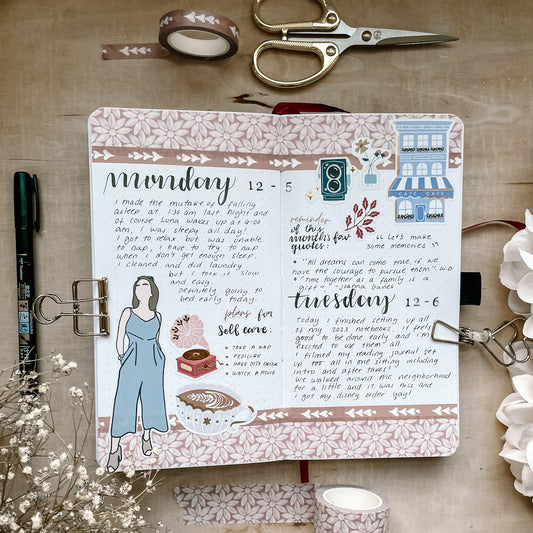 monday 12-5
I made the mistake of falling
asleep at 1:30 am last night and
of course Luna wakes up at 6:00
am, I was sleepy all day!
I got to relax but was unable
to nap, I have to try to nap
when I don't get enough sleep.
I cleaned and did laundry
but I took it slow
and easy.
Definitely going to
bed early today.
plans for
self care:
TAKE A NAP
PEDICURE
WATCH A MOVIE
CAFE CAFE
reminder
of this
month's fav
quotes:
"Let's make
some memories"
"All dreams can come true, if we
have the courage to pursue them" W.D
"Time together as a family is a
gift" - Joanna Gaines
tuesday 12-6
Today I finished setting up all
of my 2023 notebooks, it feels
good to be done early and I'm
excited to use them all.
I filmed my reading journal set
up too all in one sitting including
intro and after takes!
We walked around the neighborhood
for a little and it was nice and
I got my Disney order yay!